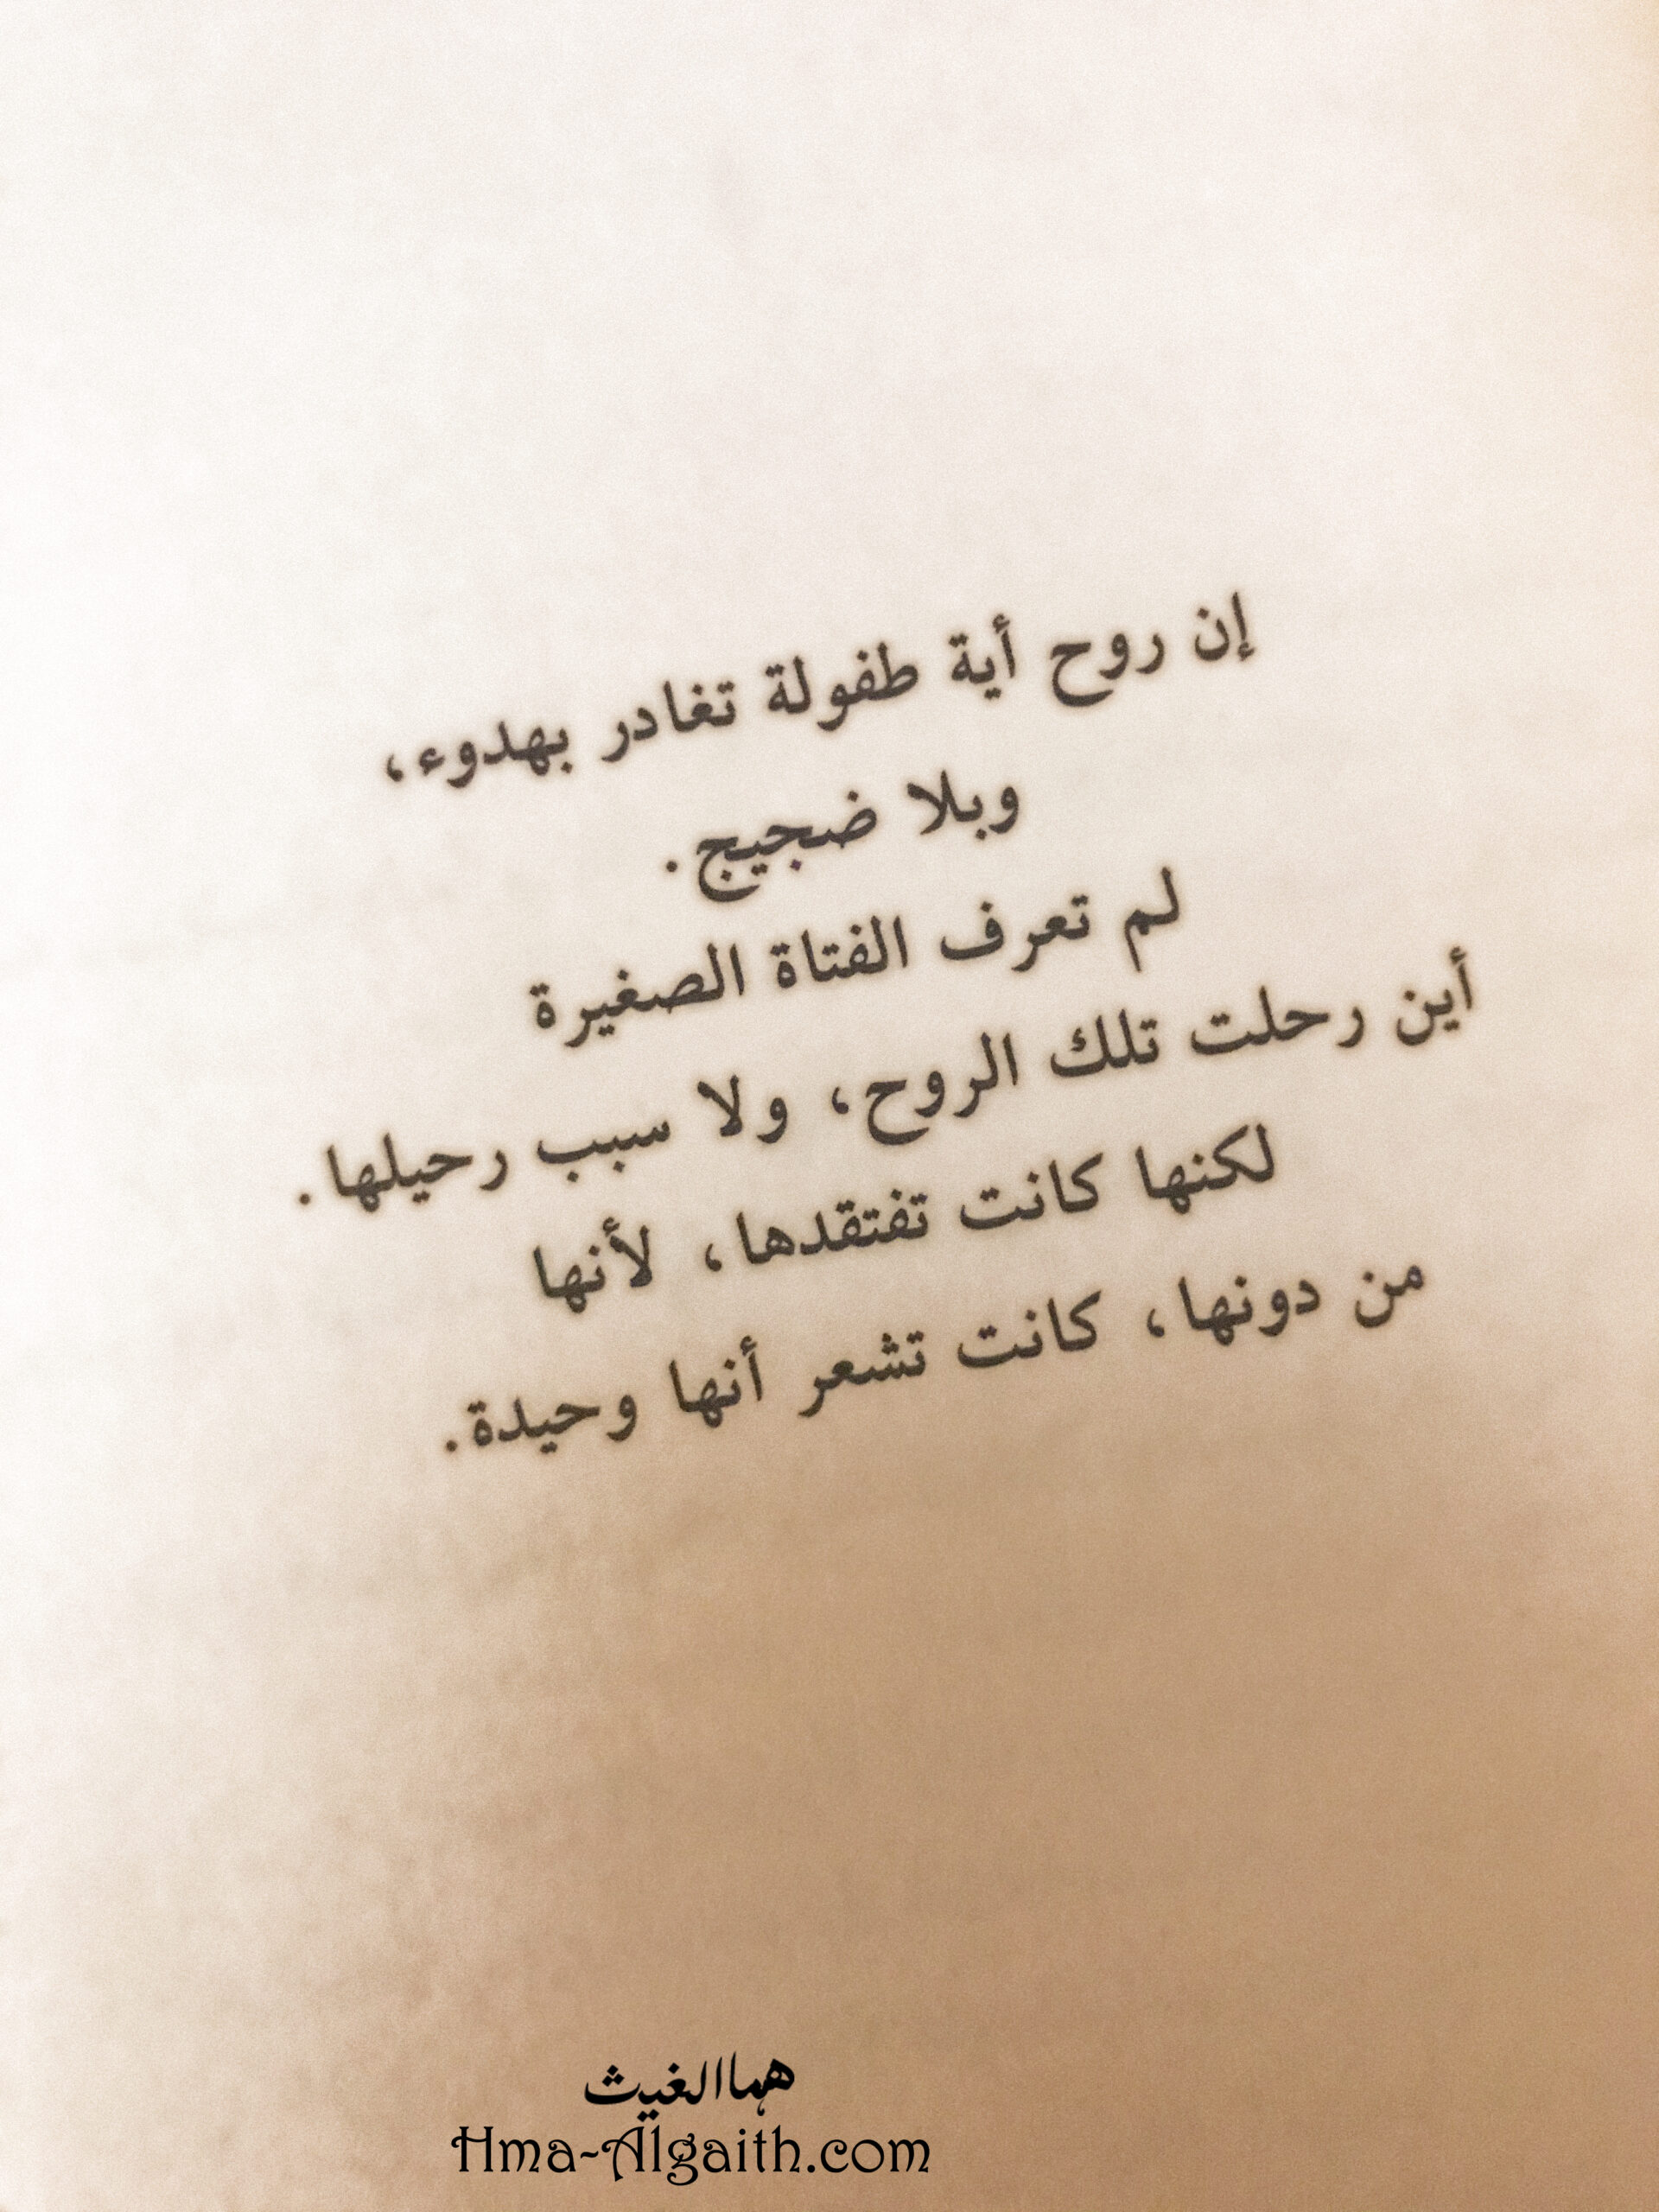 إن روح أية طفولة تغادر بهدوء،
وبلا ضجيج.
لم تعرف الفتاة الصغيرة
أين رحلت تلك الروح، ولا سبب رحيلها.
لكنها كانت تفتقدها، لأنها
من دونها، كانت تشعر أنها وحيدة.
هما الغيث
Hma-Algaith.com